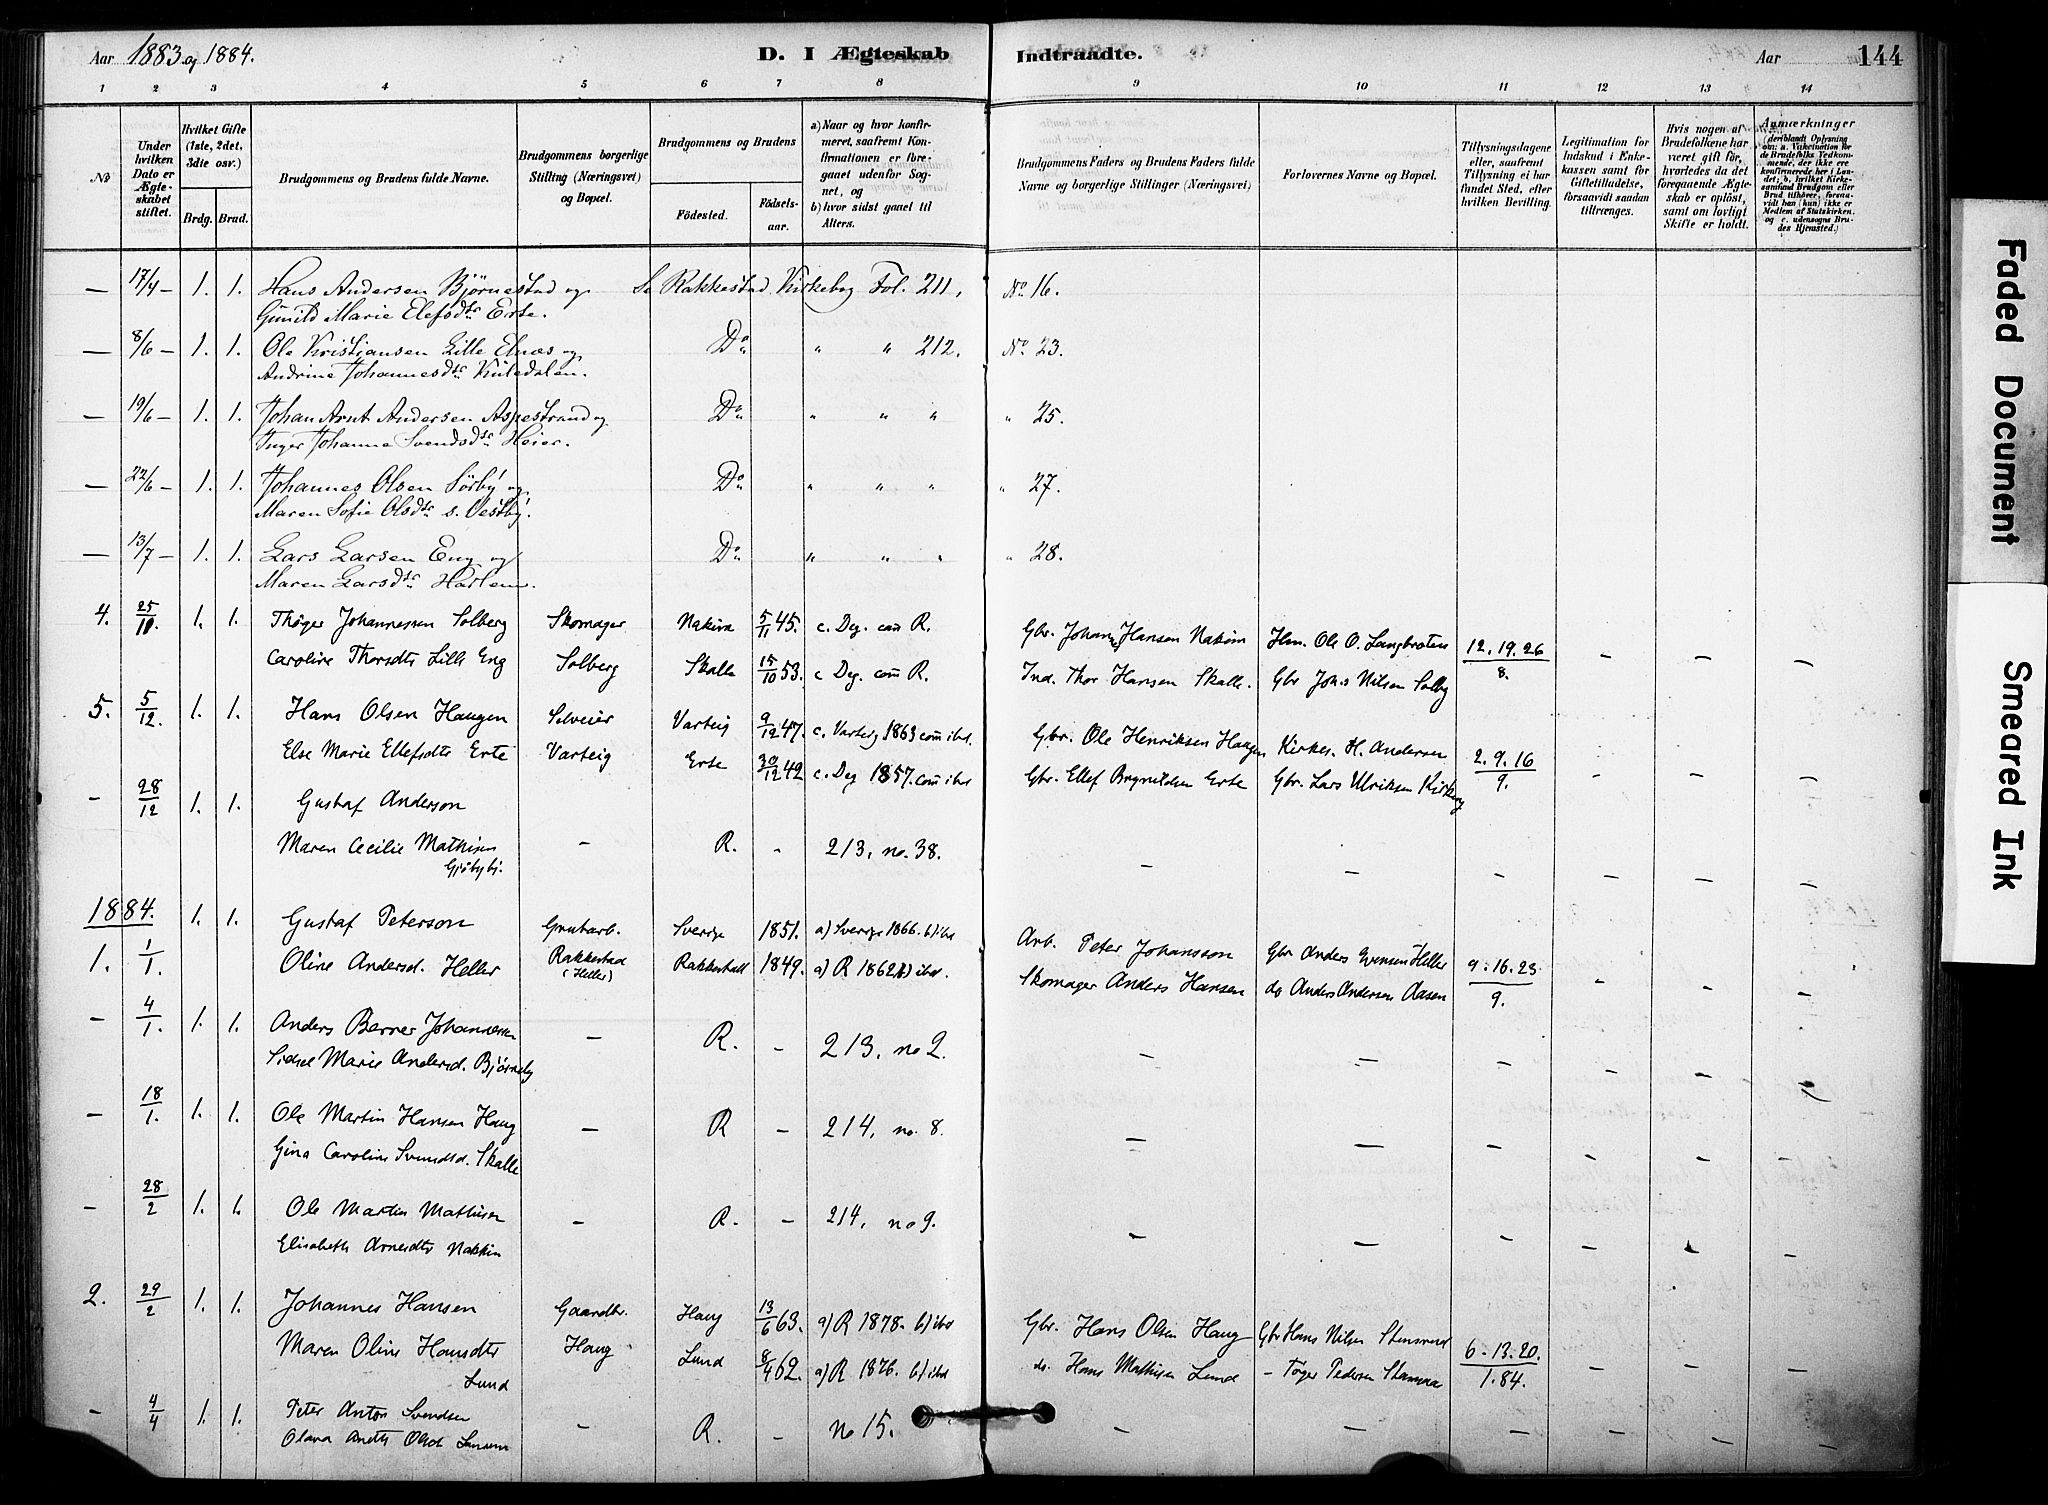 Aar 1883 og 1884.
D. I Ægteskab Indtraadte.
Aar 144
1 2 3 4 5 6 7 8 9 10 11 12 13 14
No
Under hvilken Dato er Ægteskabet stiftet.
Hvilket Gifte (1ste, 2det, 3die osv.)
Brdg. Brud.
Brudgommens og Brudens fulde Navne.
Brudgommens borgerlige Stilling (Næringsvei) og Bopæl.
Brudgommens og Brudens
Fødested.
Fødselsaar.
a) Naar og hvor konfirmeret, saafremt Konfirmationen er foregaaet udenfor Sognet, og
b) hvor sidst gaaet til Alters.
Brudgommens Faders og Brudens Faders fulde Navne og borgerlige Stillinger (Næringsvei)
Forlovernes Navne og Bopæl.
Tillysningsdagene eller, saafremt Tillysning ei har fundet Sted, efter hvilken Bevilling.
Legitimation for Indskud i Enkekassen samt for Giftetilladelse, forsaavidt saadan tiltrænges.
Hvis nogen af Brudefolkene har været gift før, hvorledes da det foregaaende Ægteskab er opløst, samt om lovligt Skifte er holdt.
Anmærkninger (deriblandt Oplysning om: a. Vakcination for de Brudefolks Vedkommende, der ikke ere konfirmerede her i Landet; b. hvilket Kirkesamfund Brudgom eller Brud tilhører, forsaavidt han (hun) ikke er Medlem af Statskirken, og c. udensogns Brudes Hjemsted.)
— 17/4 — 1. 1. Hans Andersen Bjørnestad og Se Rakkestad Kirkebog Fol. 211. No 16.
Gunild Marie Elefsdtr Erte.
— 8/6 — 1. 1. Ole Kristiansen Lille Elnæs og Do " " 212. No 23.
Andrine Johannesdtr
— 19/6 — 1. 1. Johan Arnt Andersen Aspestrand og Do " " " " 25.
Inger Johanne Svendsdtr Heier.
— 22/6 — 1. 1. Johannes Olsen Sørby og Do " " " " 27.
Maren Sofie Olsdtr s. Vestby.
— 13/7 — 1. 1. Lars Larsen Eng og Do " " " " 28.
Maren Larsdtr Harlem.
4. 25/10 1. 1. Thøger Johannessen Solberg Skomager 5/11 45. c. Deg. com R. Gbr. Johans Hansen Hsm. Ole O. Langbraten 12. 19. 26
Caroline Thorsdtr Lille Eng Solberg Skalle 15/10 53. c Deg. com R. Ind. Thor Hansen Skalle. Gbr Johs Nilsen Solby 8. — — —
5. 5/12. 1. 1. Hans Olsen Haugen Selveier Varteig 9/12 47. c. Varteig 1863 com ibd. Gbr. Ole Henriksen Haugen Kirkes. H. Andersen 2. 9. 16
Else Marie Ellefsdtr Erte Varteig Erte 30/12 42 c. Deg 1857. com ibd Gbr. Ellef Brynildsen Erte Gbr. Lars Ulriksen Kirkeng 9. — — —
- 28/12 1. 1. Gustaf Anderson
Maren Cecilie Mathisen — R. - 213, no. 38. — — — — — —
Gjøbybj.
1884. 1. 1. Gustaf Peterson Grubarb. Sverige 1851. a) Sverige 1866. b) ibd Arb. Peter Johansson Gbr Anders Evensen Heller 9. 16. 23
1. 1/1. Oline Andersd. Heller Rakkestad (Heller) Rakkestad 1849. a) R 1862 b) ibd. Skomager Anders Hansen do Anders Andersen Aasen 9. — — —
— 4/1. 1. 1. Anders Berner Johannessen — R. — 213, no 2. — — — — —
Sidsel Marie Andersd. Bjørneby
— 18/1. 1. 1. Ole Martin Hansen Haug — R — 214, no. 8. — — — — — —
Gina Caroline Svendsd. Skalle
— 28/2 1. 1. Ole Martin Mathisen — R. — 214, no 9. — — — — —
Elisabeth Arnesdtr
2. 29/2 1. 1. Johannes Hansen Gaardbr. Haug 13/6 63. a) R 1878. b) ibd Gbr. Hans Olsen Haug Gbr Hans Nilsen 6. 13. 20.
Maren Oline Hansdtr Haug Lund 8/4 62. a) R 1876. b) ibd do. Hans Mathisen Lund — Tøger Pedersen 1. 84. — — —
Lund
— 4/4 1. 1. Peter Anton Svendsen — R. — no 15. — — — — — —
Olava Anette Olsdt
Faded Document
Smeared Ink